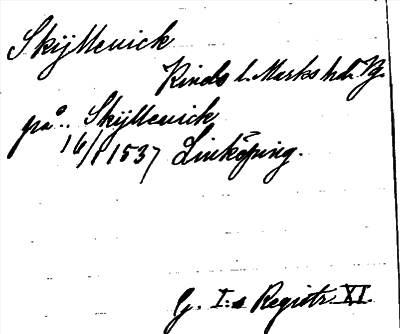 Skÿtteuick
Kinds l. Marks hd. Vg.
på.. Skÿtteuick
16/1 1537 Linköping.
G. I:s Registr. XI.